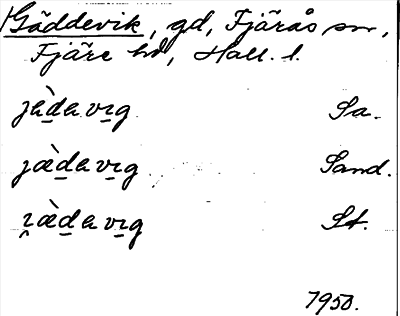 Gäddevik, gd, Fjärås sn,
Fjäre hd, Hall. l.
jæ̀da vıg Sa.
jæ̀da vıg Sand.
ı̯æ̀da vıg St.
1950.